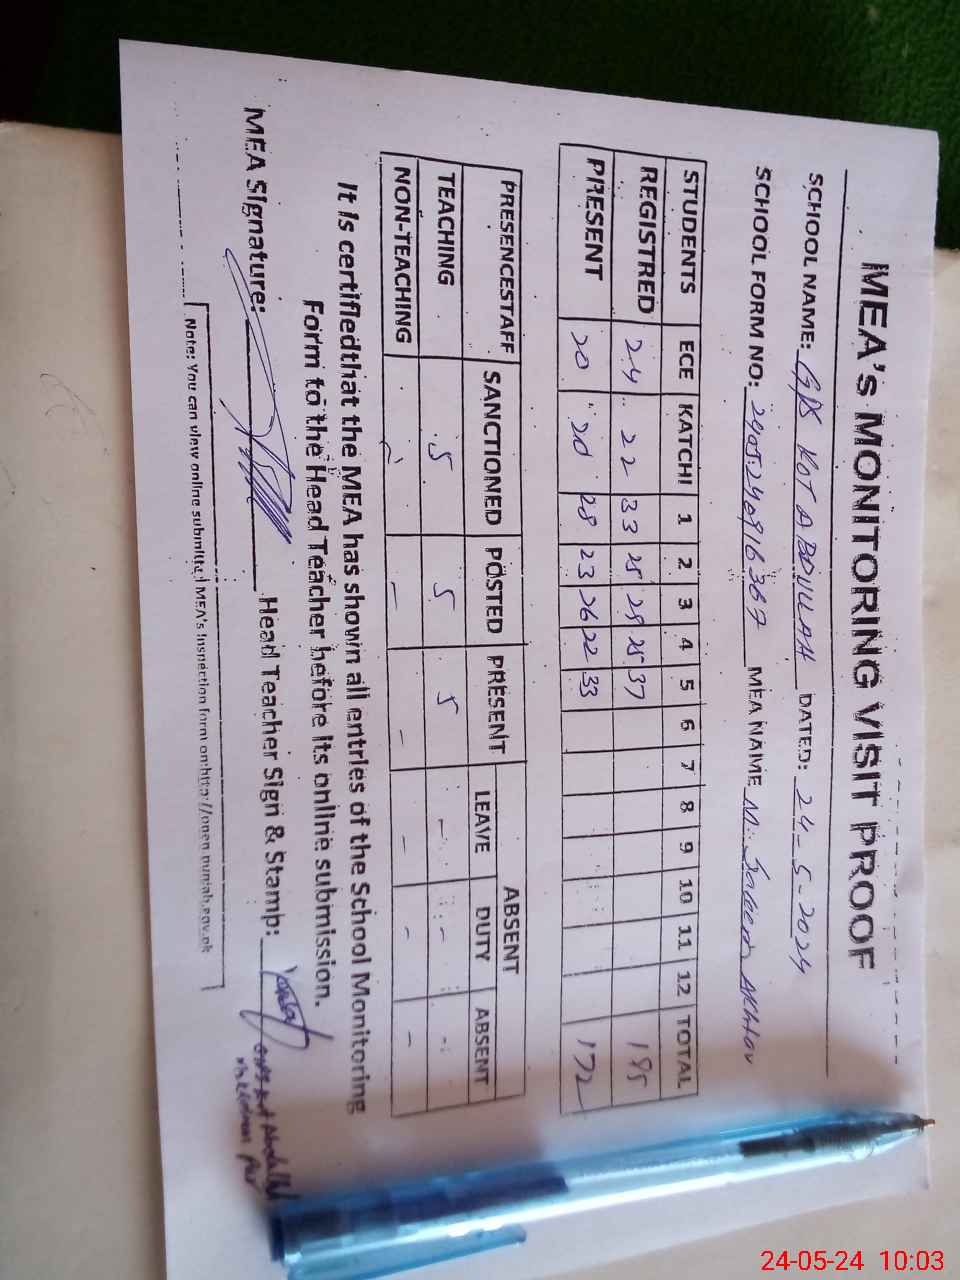 MEA's MONITORING VISIT PROOF
SCHOOL NAME: GPS KOT ABDULLAH DATED: 24-5-2024
SCHOOL FORM NO: MEA NAME M. Akhtar
STUDENTS ECE KATCHI 1 2 3 4 5 6 7 8 9 10 11 12 TOTAL
REGISTRED 24 22 33 25 29 25 37 195
PRESENT 20 20 28 23 26 22 33 172
PRESENCESTAFF SANCTIONED POSTED PRESENT ABSENT
LEAVE DUTY ABSENT
TEACHING 5 5 5 - - -
NON-TEACHING - - - - - -
It is certifiedthat the MEA has shown all entries of the School Monitoring
Form to the Head Teacher before its online submission.
MEA Signature: Head Teacher Sign & Stamp:
Kot Abdullah
Note: You can view online submitted MEA's Inspection form on:http://open.punjab.gov.pk
24-05-24 10:03